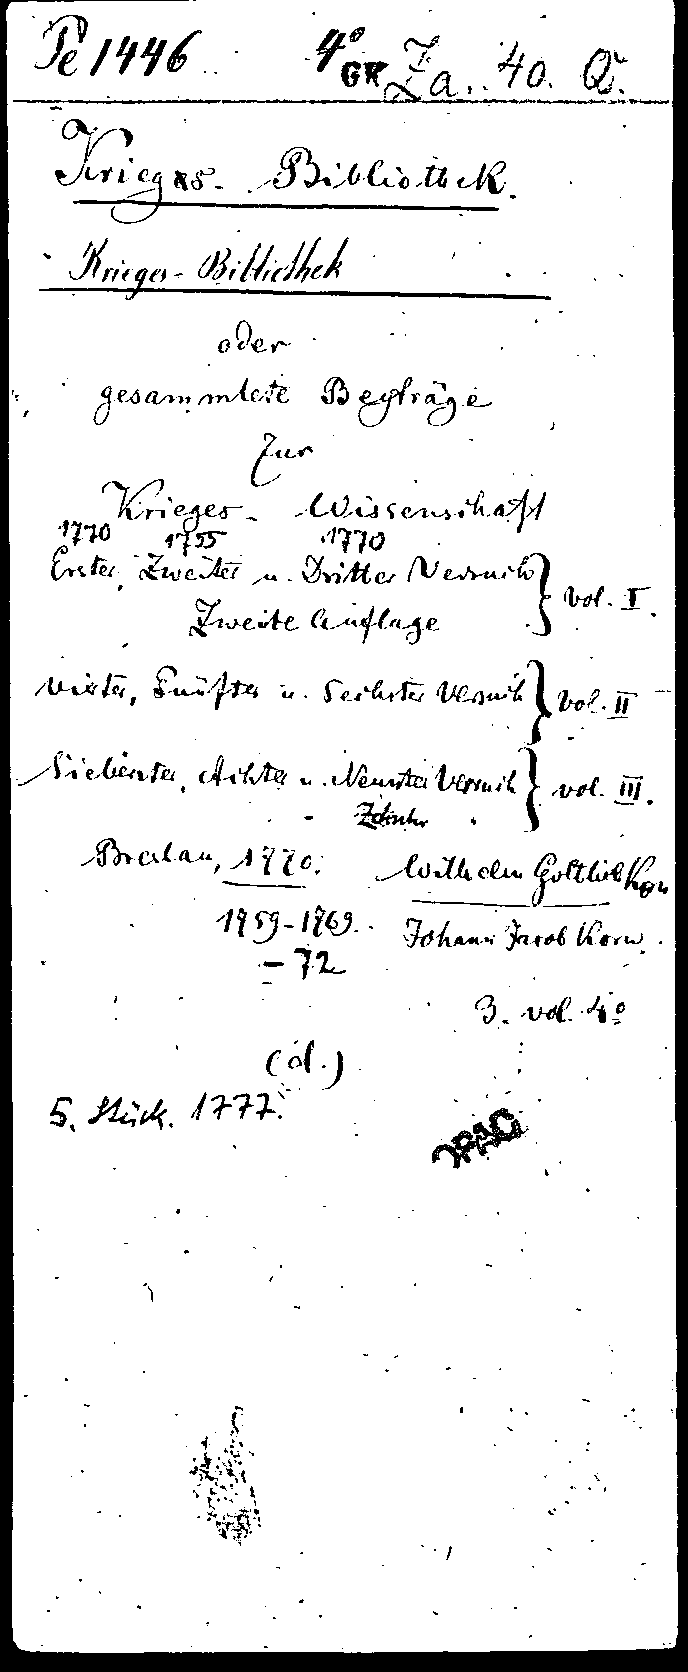 Pe 1446 4° GR Za. 40. Q.
Krieges-Bibliothek.
Krieges-Bibliothek
oder
gesammlete Beyträge
zur
Krieges-Wissenschaft
1770 1755 1770
Erster, Zweiter u. Dritter Versuch } vol. I.
Zweite Auflage
Vierter, Fünfter u. Sechster Versuch } vol. II
Siebenter, Achter u. Neunter Versuch } vol. III.
Zehnter "
Breslau, 1770. Wilhelm Gottlieb Korn
1759-1769. Johann Jacob Korn.
-72
3. vol. 4°
(d.)
5. Stück. 1777.
OPAC